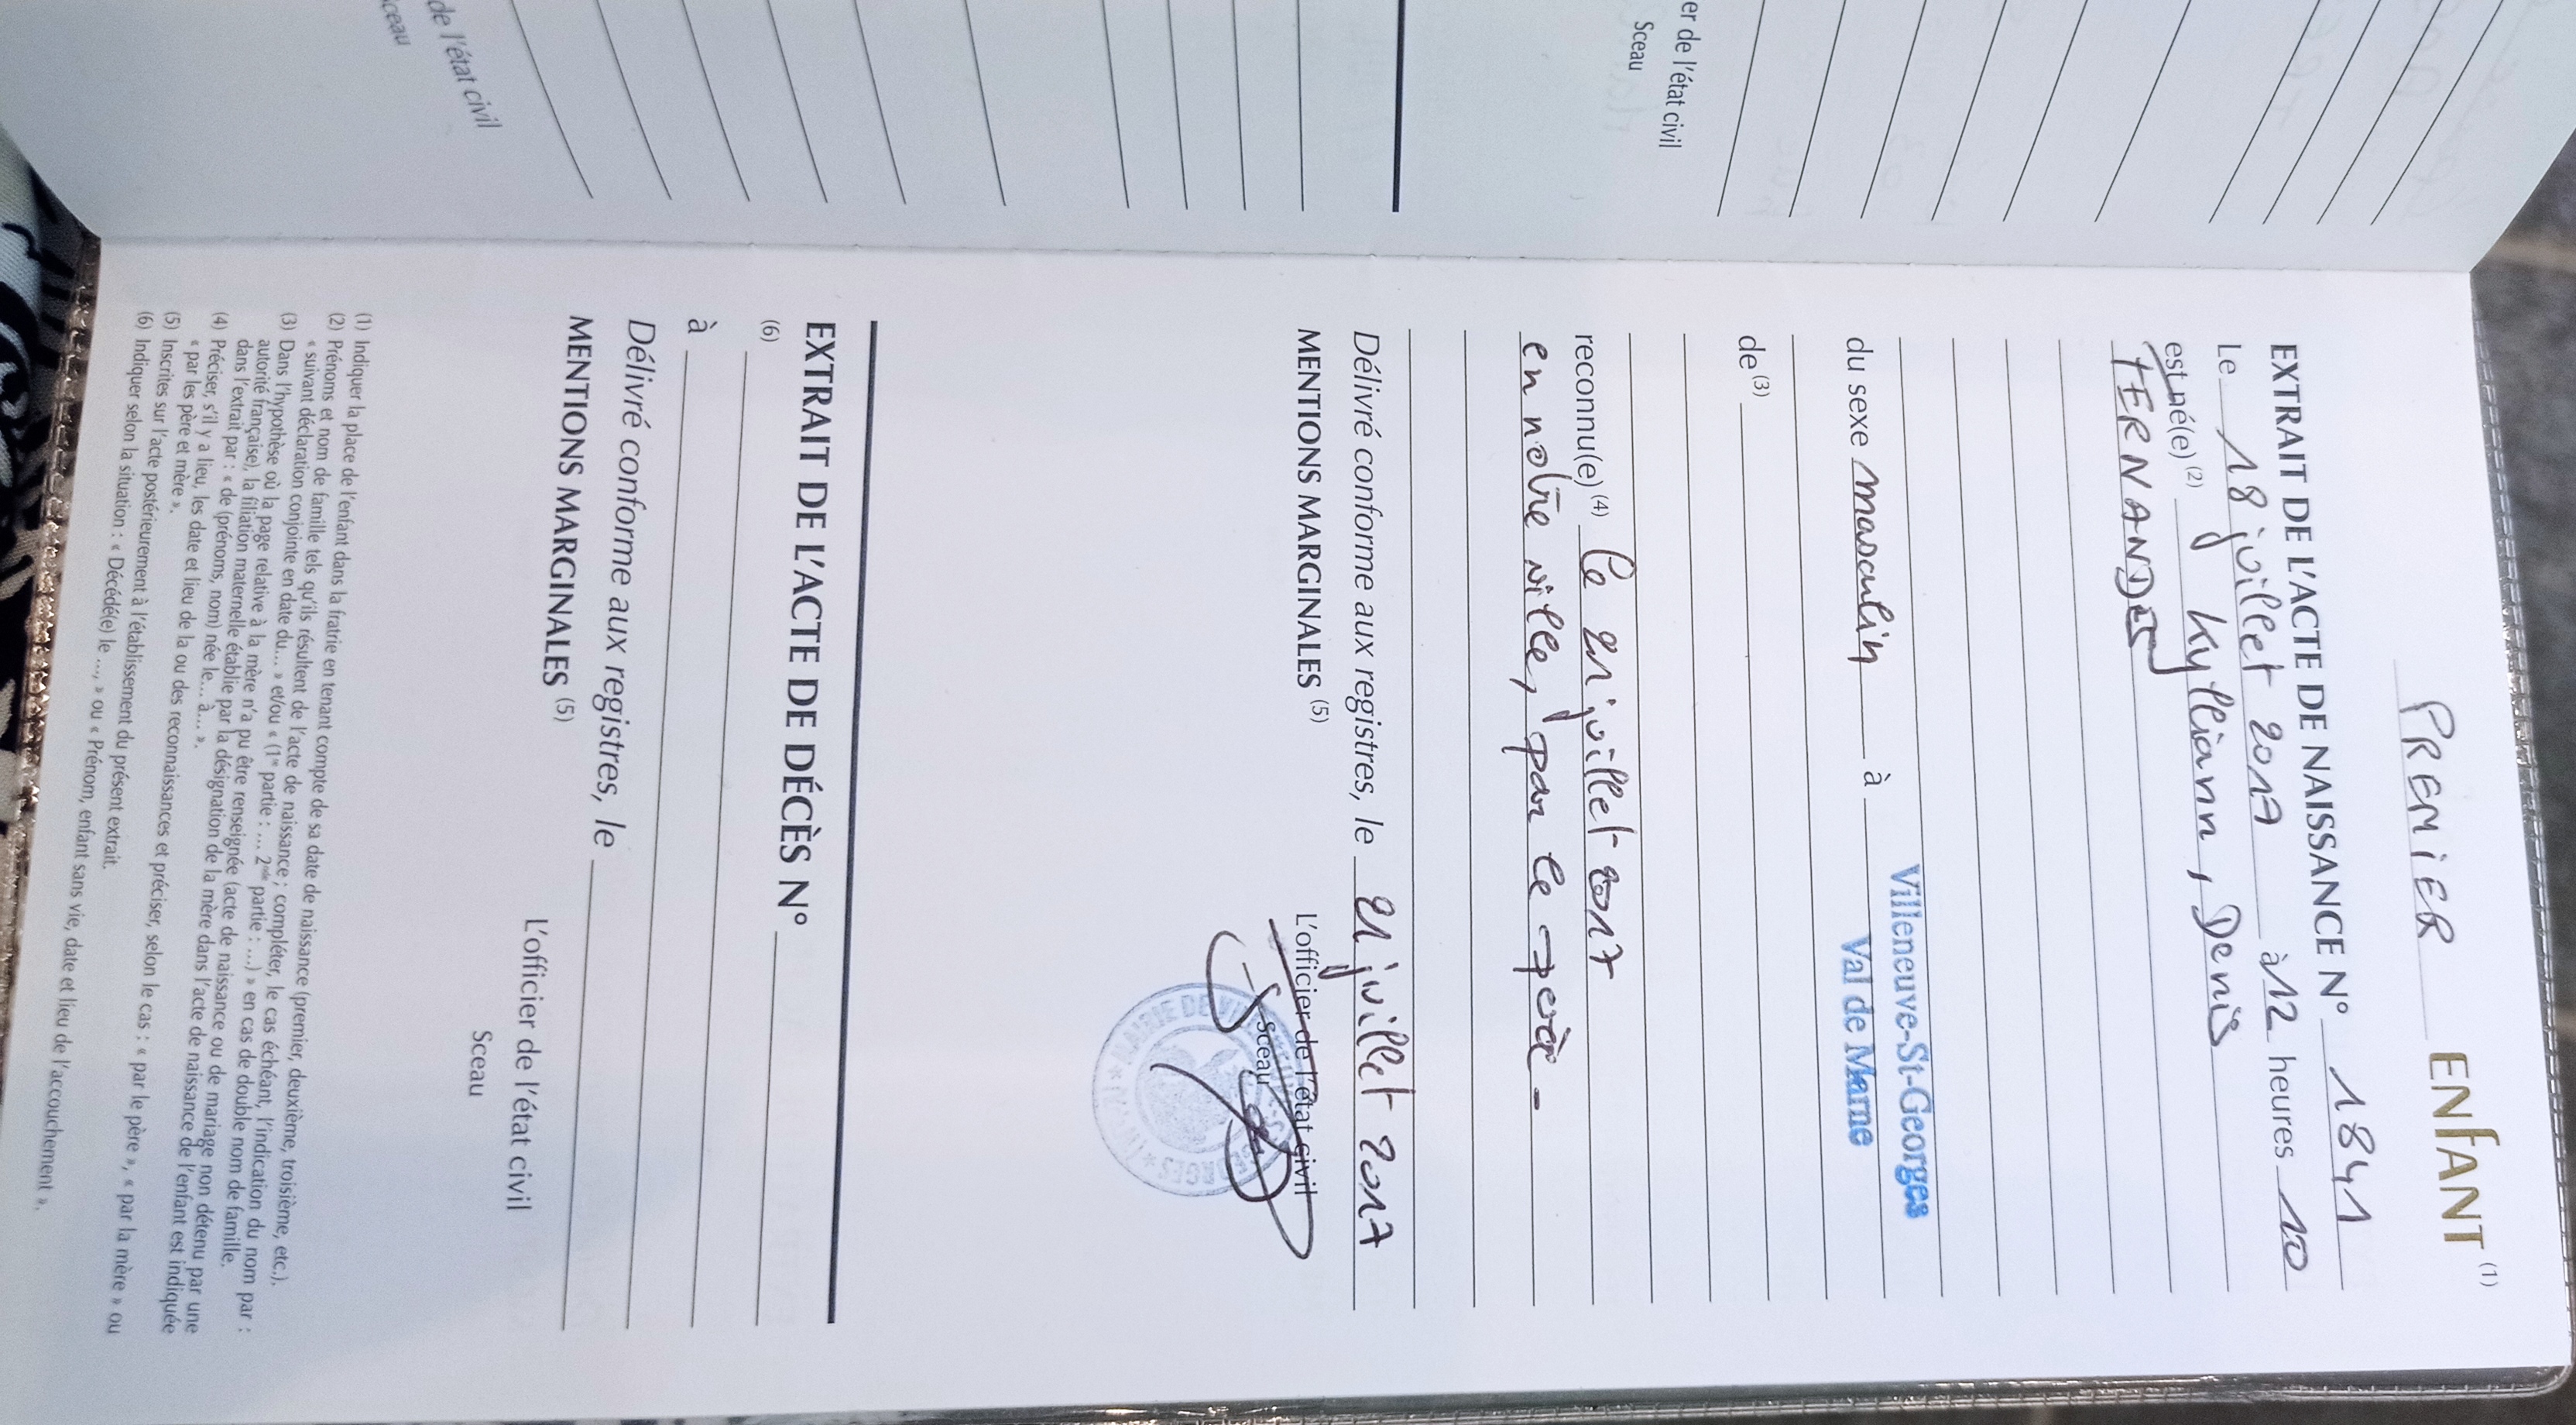 PREMIER ENFANT (1)
EXTRAIT DE L'ACTE DE NAISSANCE N° 1841
Le 18 juillet 2017 à 12 heures 10
est né(e) (2) Kylliann, Denis
FERNANDES
Villeneuve-St-Georges
du sexe masculin à Val de Marne
de (3)
reconnu(e) (4) le 21 juillet 2017
en notre ville, par le père -
Délivré conforme aux registres, le 21 juillet 2017
MENTIONS MARGINALES (5)
L'officier de l'état civil
Sceau
EXTRAIT DE L'ACTE DE DÉCÈS N°
(6)
à
Délivré conforme aux registres, le
MENTIONS MARGINALES (5)
L'officier de l'état civil
Sceau
(1) Indiquer la place de l'enfant dans la fratrie en tenant compte de sa date de naissance (premier, deuxième, troisième, etc.).
(2) Prénoms et nom de famille tels qu'ils résultent de l'acte de naissance ; compléter, le cas échéant, l'indication du nom par :
« suivant déclaration conjointe en date du... » et/ou « (1re partie : ... 2nde partie : ...) » en cas de double nom de famille.
(3) Dans l'hypothèse où la page relative à la mère n'a pu être renseignée (acte de naissance ou de mariage non détenu par une
autorité française), la filiation maternelle établie par la désignation de la mère dans l'acte de naissance de l'enfant est indiquée
dans l'extrait par : « de (prénoms, nom) née le... à... ».
(4) Préciser, s'il y a lieu, les date et lieu de la ou des reconnaissances et préciser, selon le cas : « par le père », « par la mère » ou
« par les père et mère ».
(5) Inscrites sur l'acte postérieurement à l'établissement du présent extrait.
(6) Indiquer selon la situation : « Décédé(e) le ..., » ou « Prénom, enfant sans vie, date et lieu de l'accouchement ».
er de l'état civil
Sceau
de l'état civil
ceau